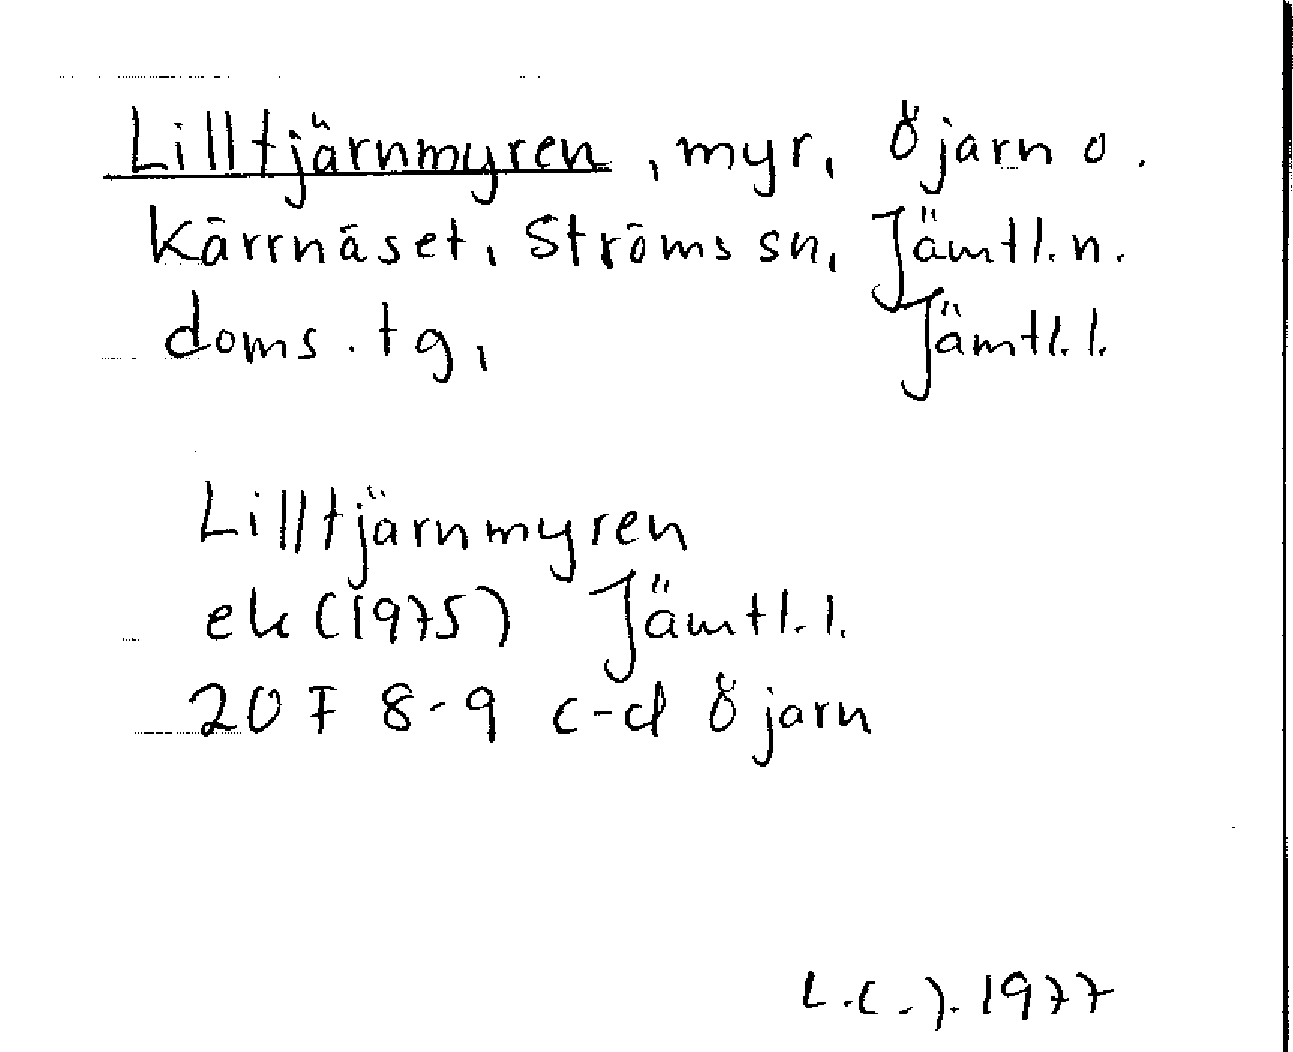 Lilltjärnmyren, myr, Öjarn o.
Kärrnäset, Ströms sn, Jämtl.n.
doms.tg, Jämtl.l.
Lilltjärnmyren
ek (1975) Jämtl.l.
20 F 8-9 c-d Öjarn
L.C.J. 1977